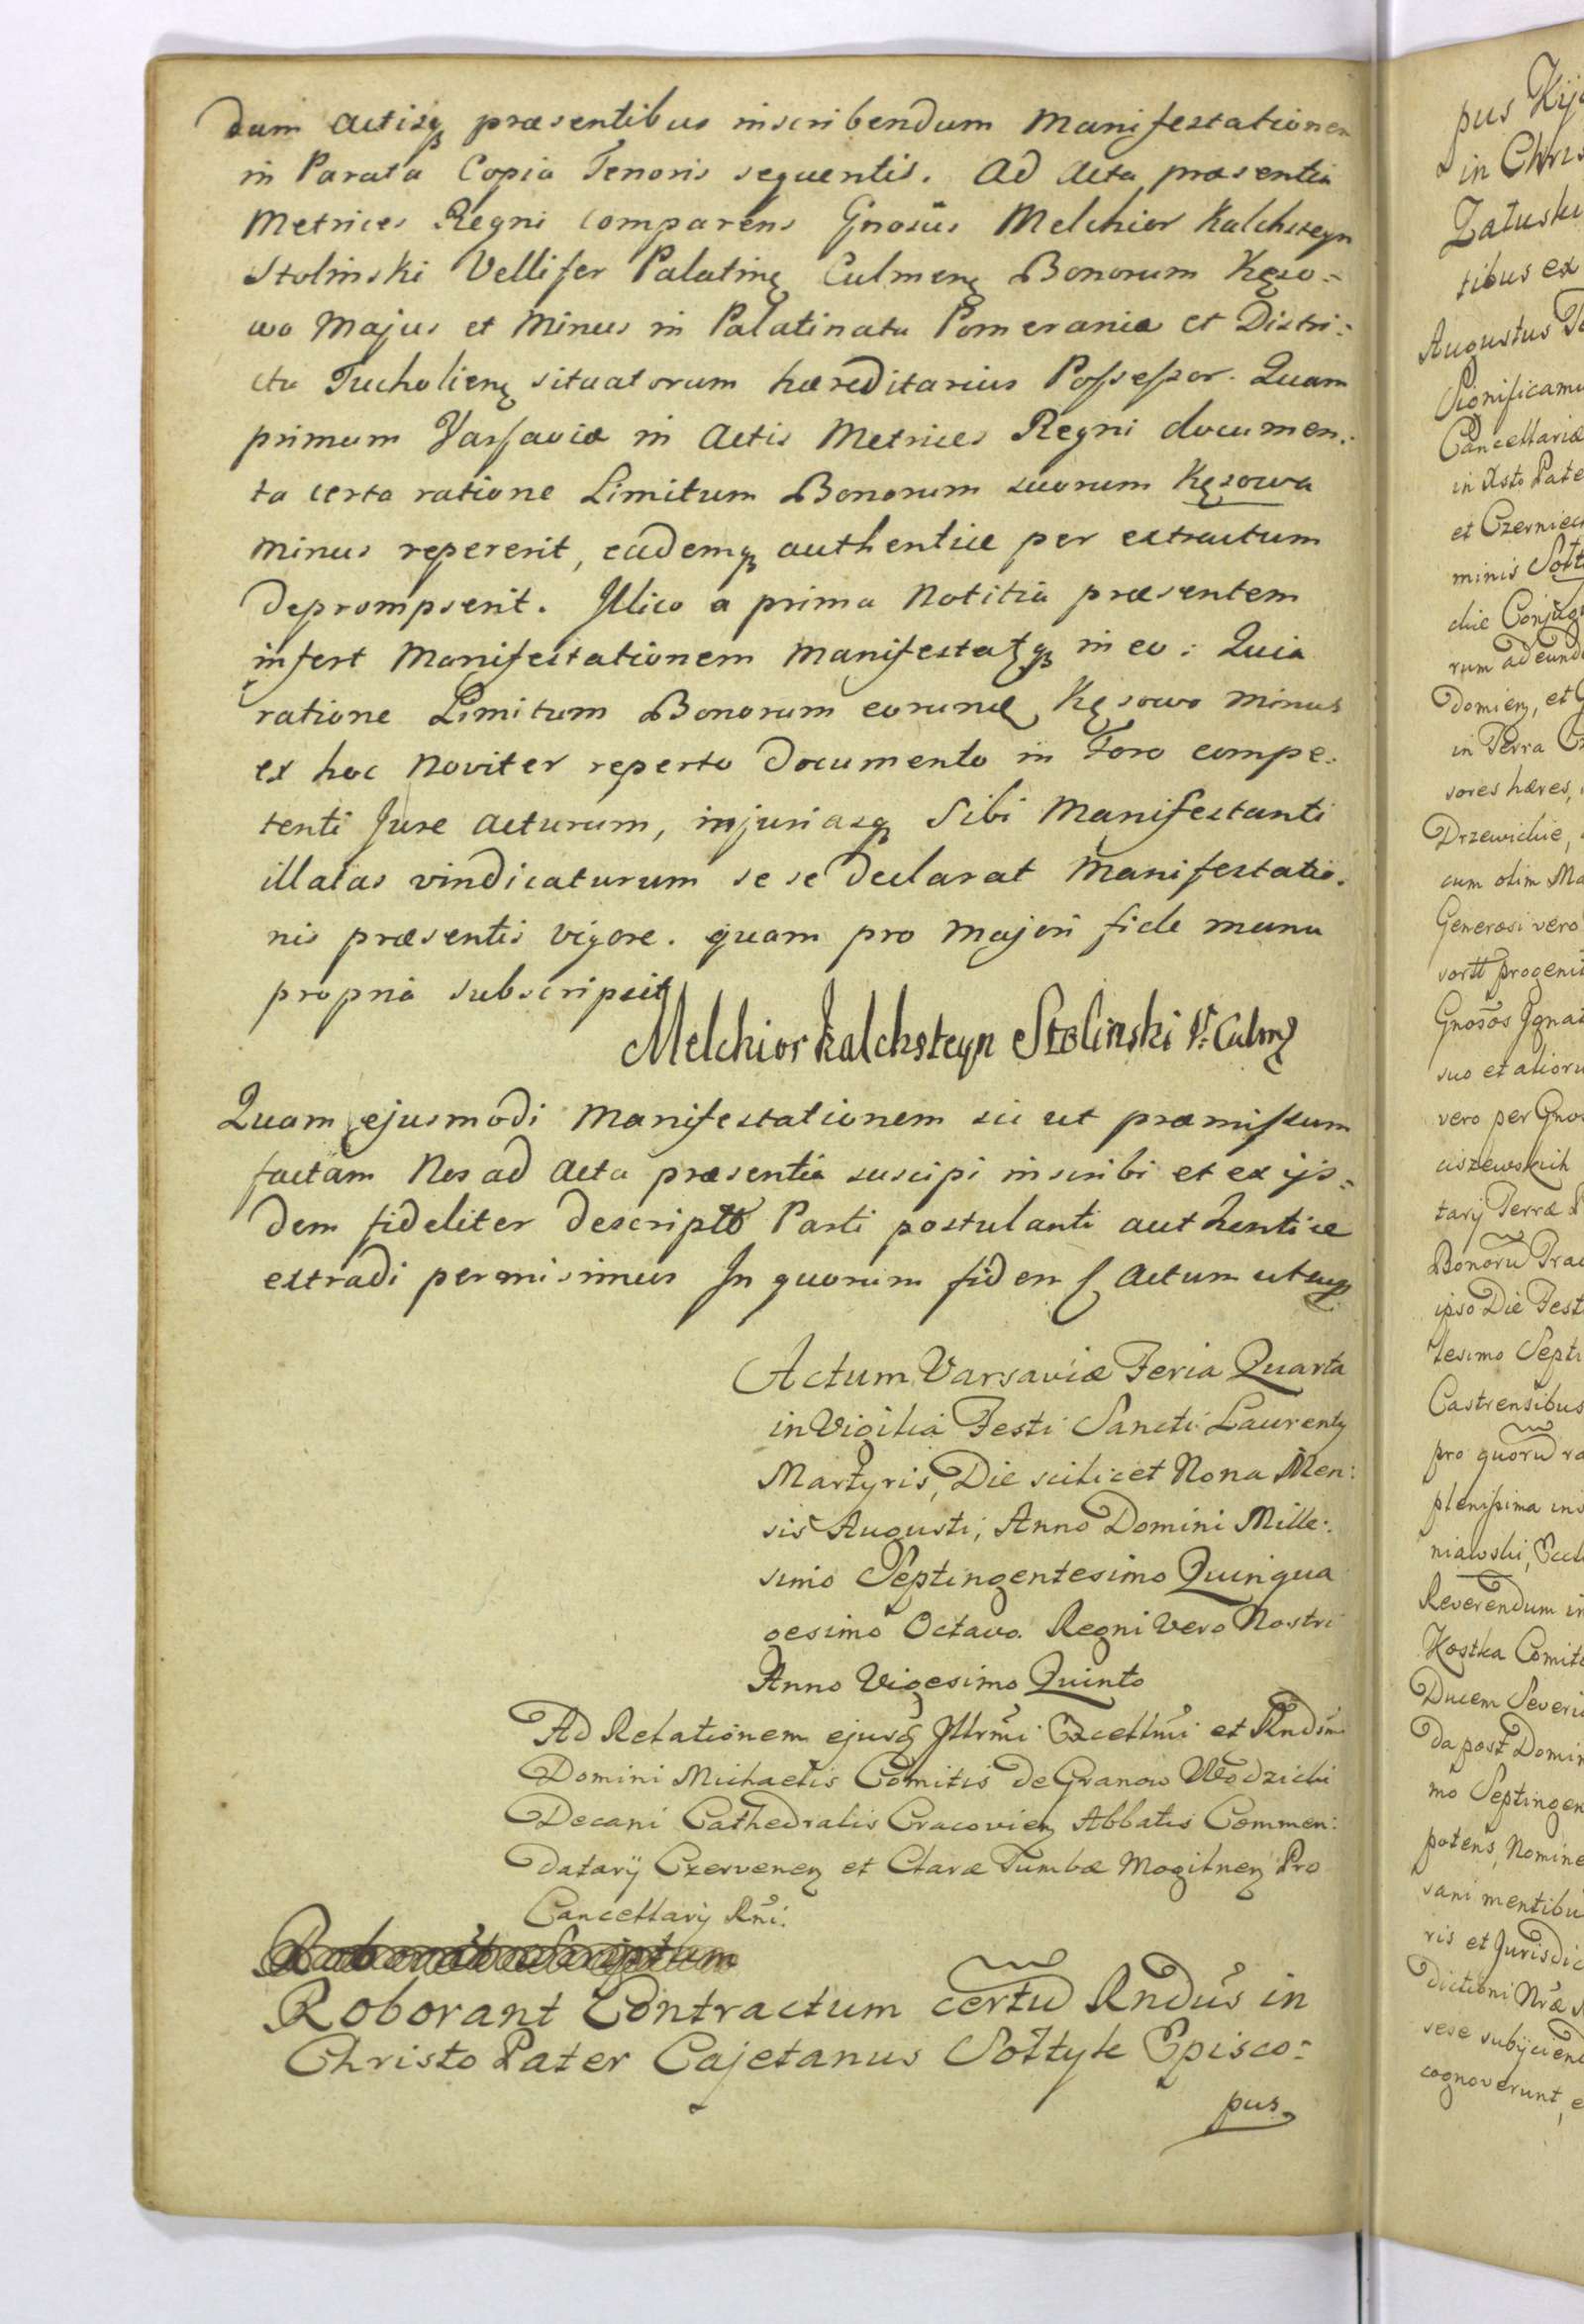 dum Actisq præsentibus inscribendum Manifestationem
in Parata Copia Tenoris sequentis. Ad Acta præsentia
Metrices Regni Comparens Gnosus Melchior Kalchsteyn
Stolinski Vellifer Palatinę Culmenę Bonorum Kęso=
wo Majus et Minus in Palatinatu Pomeraniæ et Distri:
ctu Tucholienę situatorum hæreditarius Possessor. Quam
primum Varsaviæ in Actis Metrices Regni documen:
ta certa ratione Limitum Bonorum suorum Kęsowa
minus repererit, eademq authentice per extractum
deprompserit. Illico a prima Notitia præsentem
infert Manifestationem Manifestatq in eo: Quia
ratione Limitum Bonorum eorund Kęsowo minus
ex hoc Noviter reperto Documento in Foro compe:
tenti Jure acturum, injuriasq Sibi Manifestanti
illatas vindicaturum se se Declarat Manifestatio:
nis præsentis vigore. quam pro majori fide manu
propria subscripsit
Melchior Kalchsteyn Stolinski V. Culmę
Quam ejusmodi Manifestationem sic ut præmissum
factam Nos ad Acta præsentia suscipi inscribi et ex ijs=
dem fideliter descriptō Parti postulanti authentice
extradi permisimus In quorum fidem Actum ut supr
Actum Varsaviæ Feria Quarta
in Vigilia Festi Sancti Laurenty
Martyris, Die scilicet Nona Men:
sis Augusti, Anno Domini Mille:
simo Septingentesimo Quinqua
gesimo Octavo. Regni vero Nostri
Anno Vigesimo Quinto
Ad Relationem ejusd Illrmi Excellmi et Rndsm
Domini Michaelis Comitis de Granow Wodzicki
Decani Cathedralis Cracovien Abbatis Commen:
datarij Czervenen et Claræ Tumbæ Mogilnen Pro
Cancellarij Rni.
Roborant Contractum certū Rndūs in
Christo Pater Cajetanus Sołtyk Episco:
pus
pus Kij
in Chris
Załuski
tibus ex
Augustus
Significamu
Cancellariæ
in Xsto Pate
et Czerniec
minis Sołt
chie Conjug
rum ad eund
domien, et
in Terra
sores hæres,
Drzewichie,
cum olim Ma
Generosi vero
progeni
Gnosos Igna
suo et alioru
vero per Gnos
ciszewskich
tarij Terræ
Bonorū Pra
ipso Die Fest
tesimo Septi
Castrensibus
pro quorū ra
plenissima ins
niawski,
Reverendum in
Kostka Comit
Ducem Severi
da post Domin
mo Septingen
potens, Nomine
sani mentibu
ris et Jurisdic
dictioni Nræ
sese subijcien
cognoverunt,